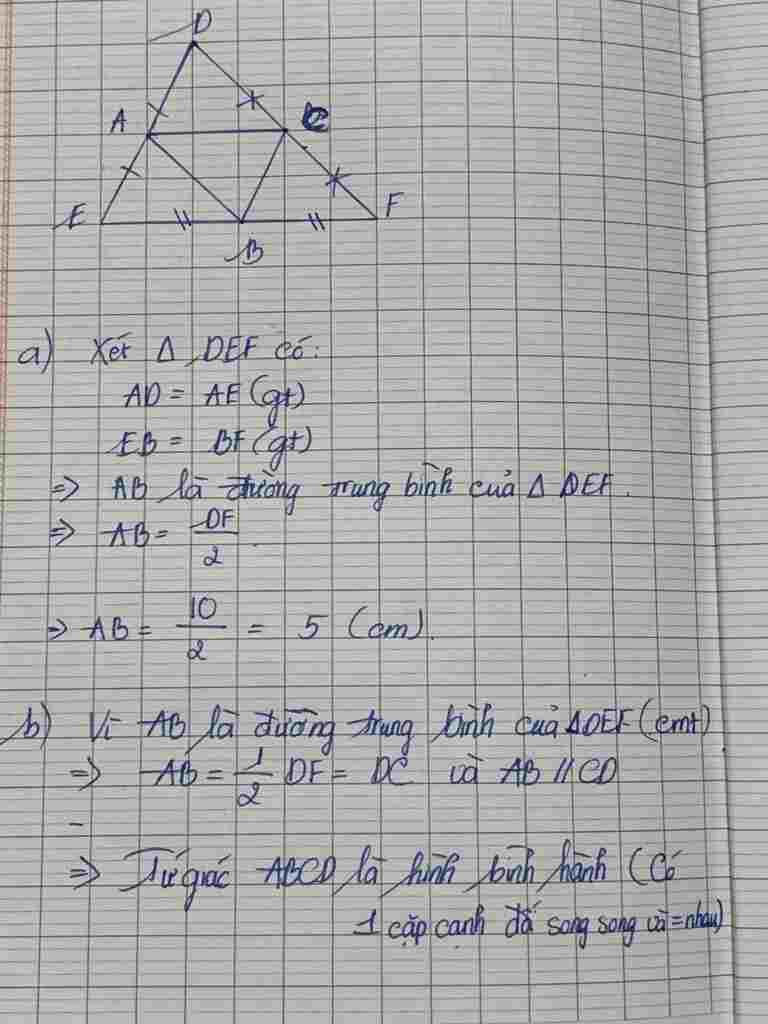 D
A C
E B F
a) Xét Δ DEF có:
AD = AE (gt)
EB = BF (gt)
=> AB là đường trung bình của Δ DEF.
=> AB = DF/2
=> AB = 10/2 = 5 (cm).
b) Vì AB là đường trung bình của ΔDEF (cmt)
=> AB = 1/2 DF = DC và AB // CD
-
=> Tứ giác ABCD là hình bình hành (Có
1 cặp cạnh đối song song và = nhau)